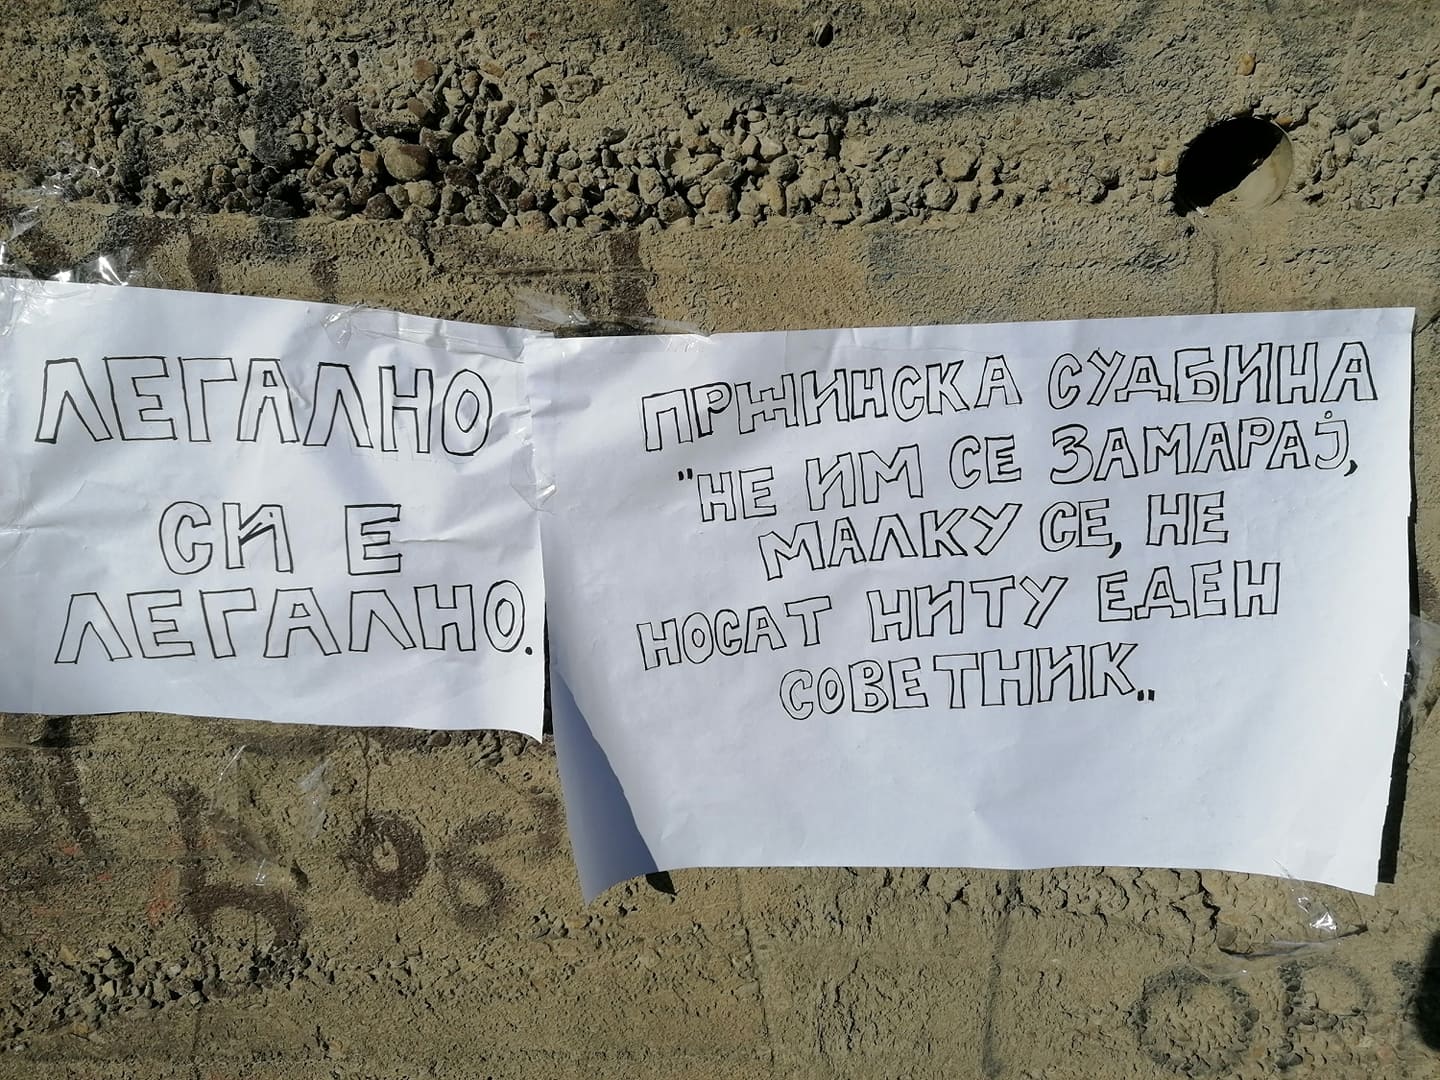 ЛЕГАЛНО
СИ Е
ЛЕГАЛНО.
ПРЖИНСКА СУДБИНА
"НЕ ИМ СЕ ЗАМАРАЈ,
МАЛКУ СЕ, НЕ
НОСАТ НИТУ ЕДЕН
СОВЕТНИК„